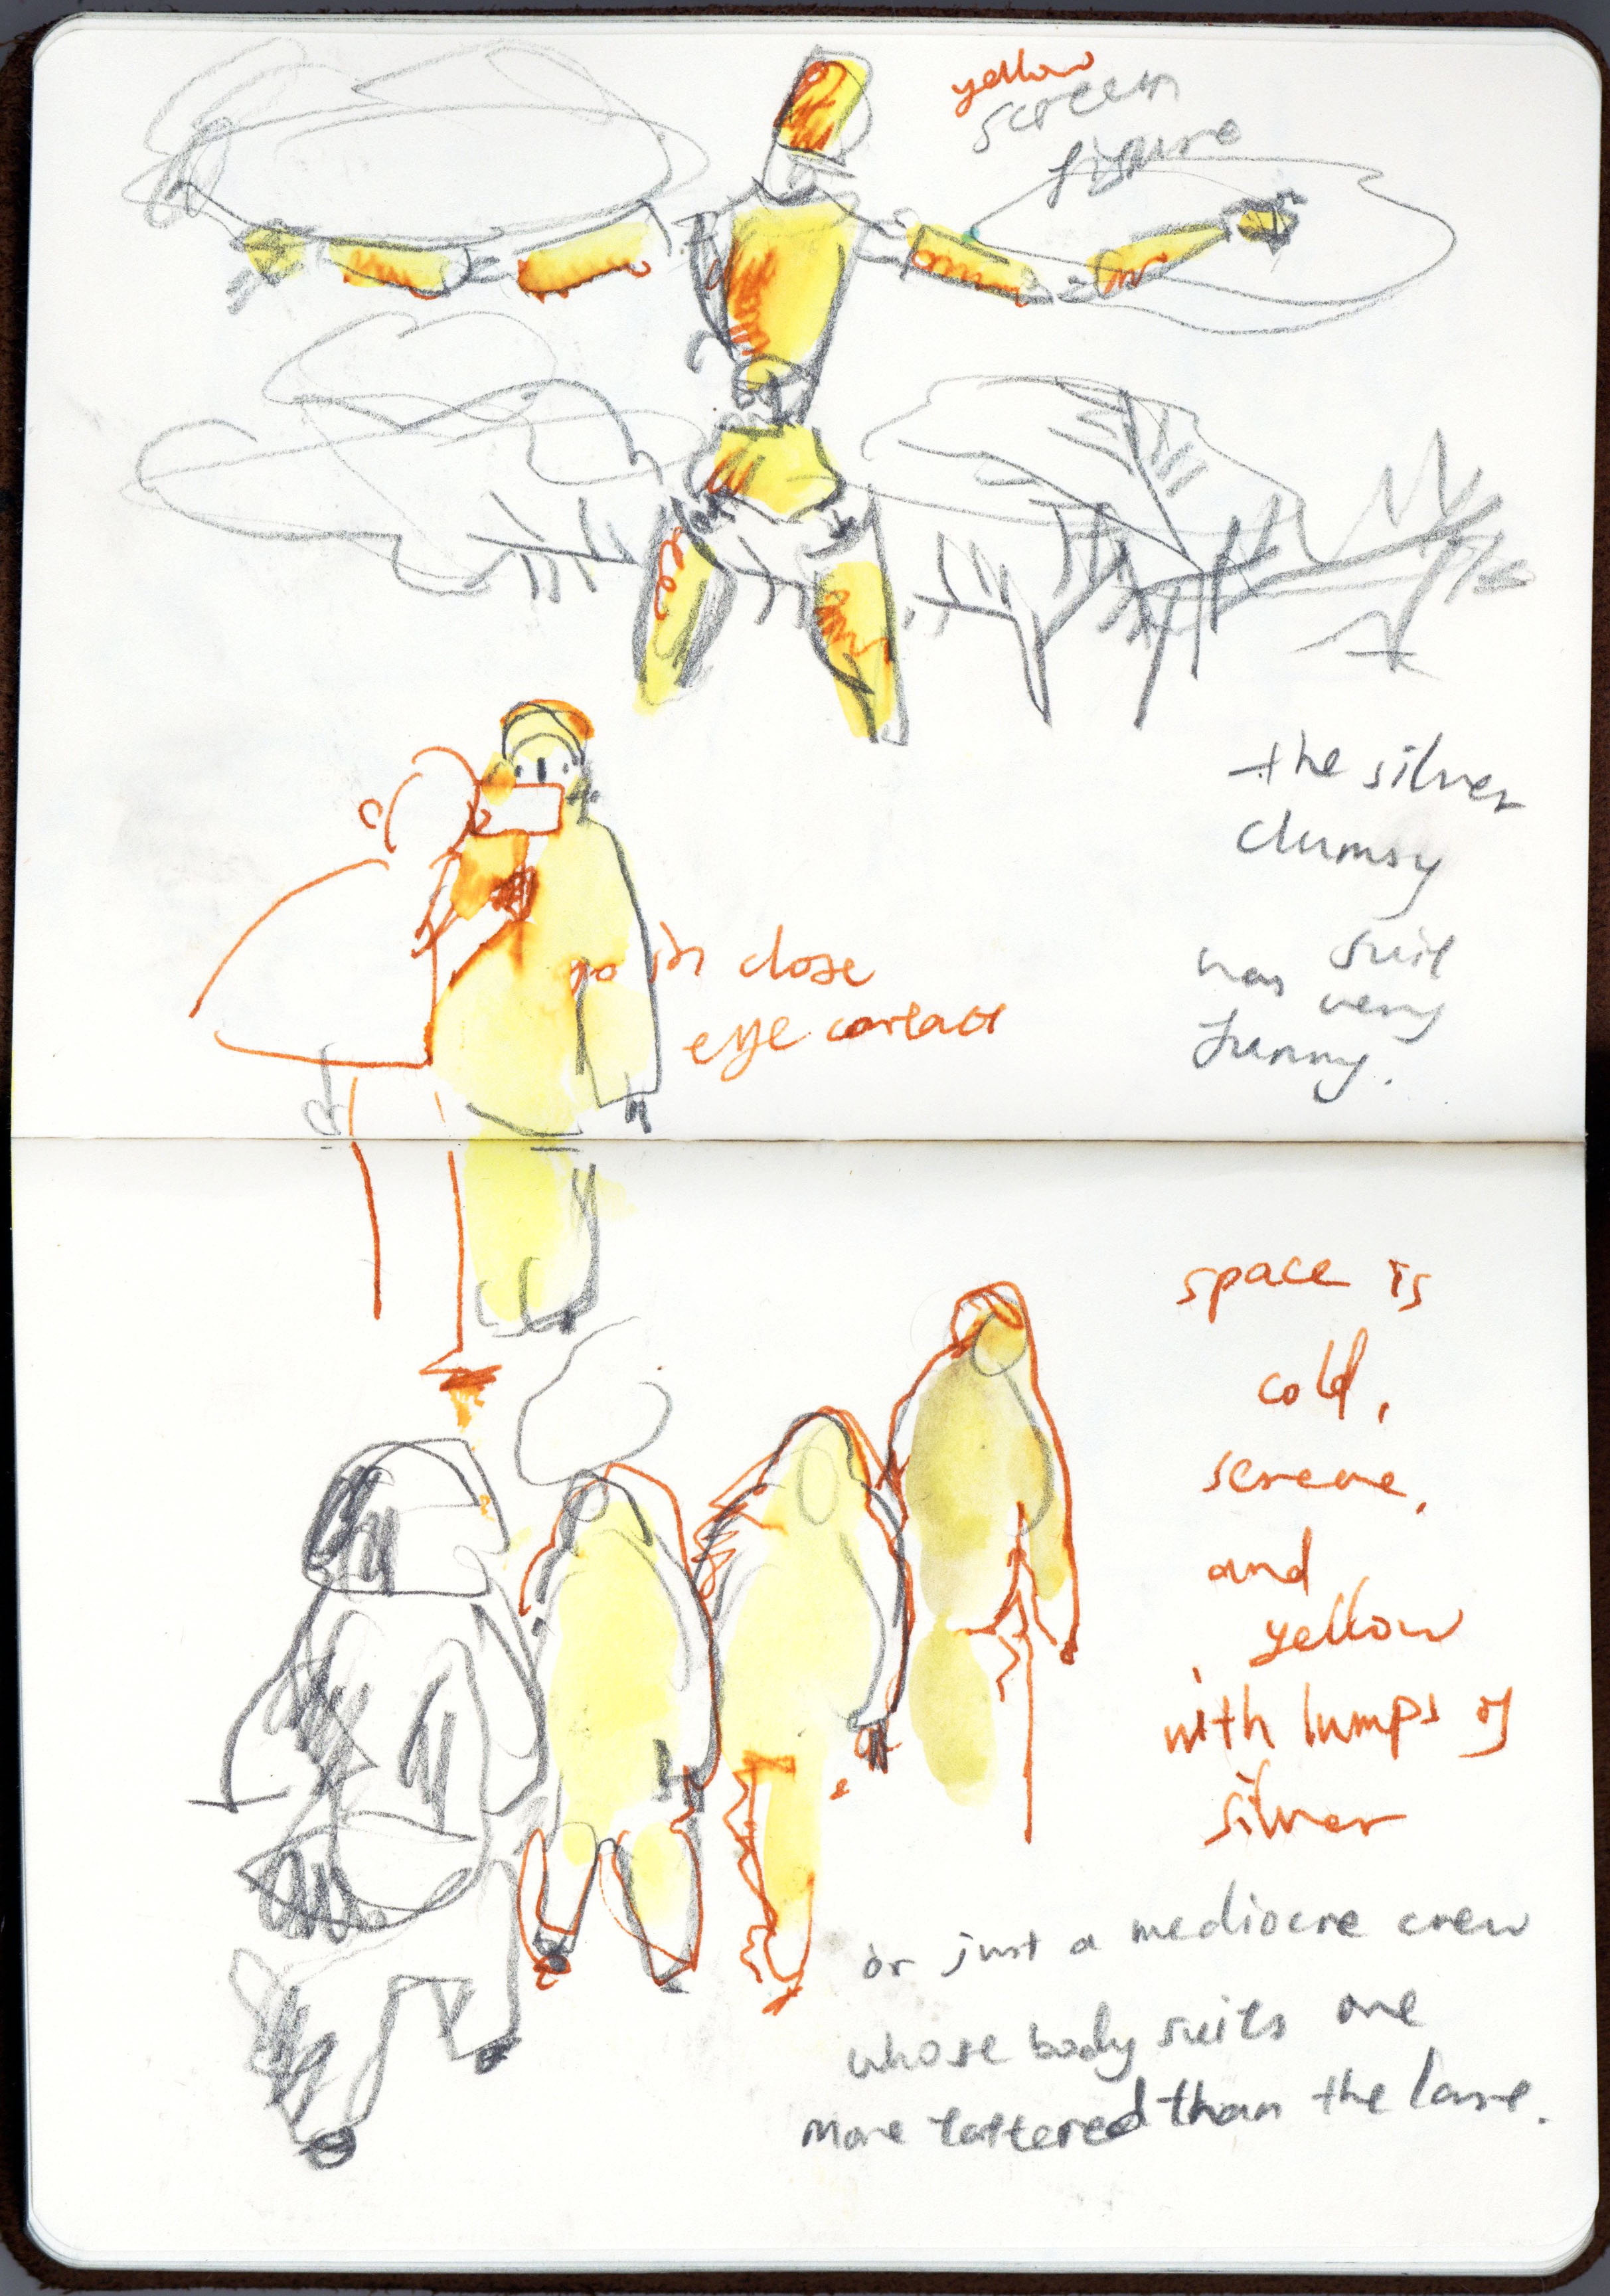 yellow
screen
figure
the silver
clumsy
suit
was very
funny.
go in close
eye contact
space is
cold,
serene,
and
yellow
with lumps of
silver
or just a mediocre crew
whose body suits one
more tattered than the last.